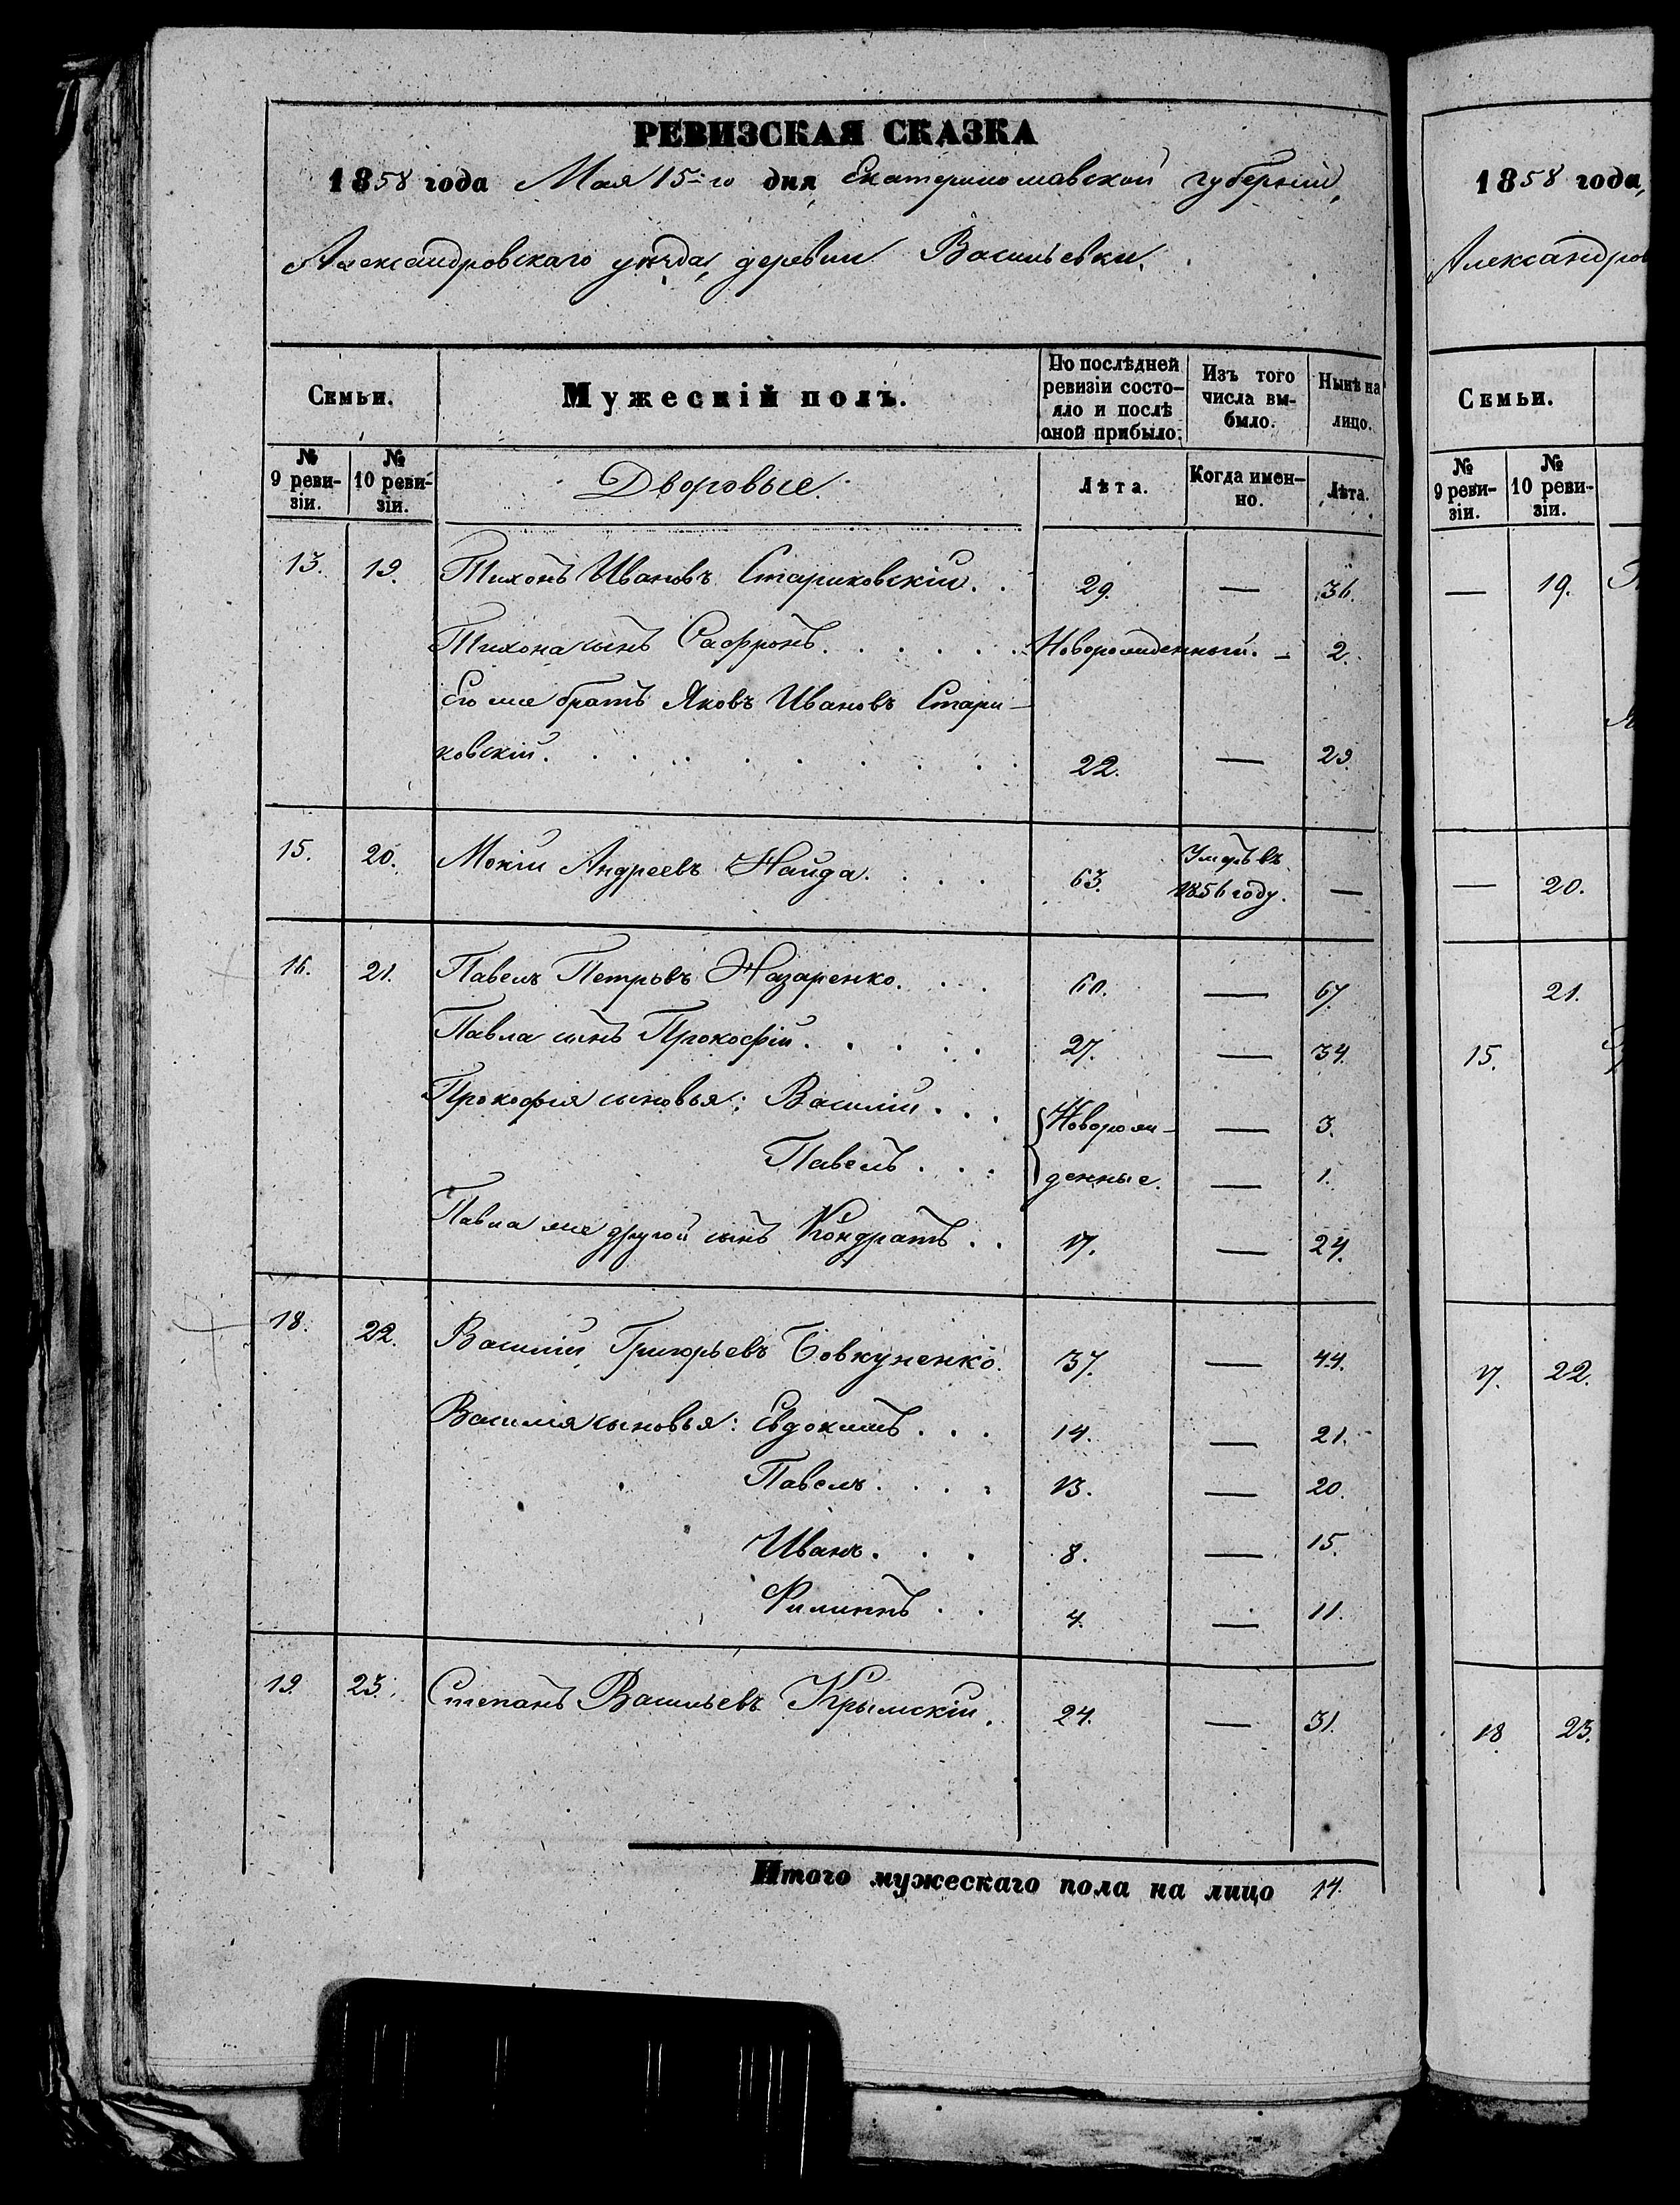 РЕВИЗСКАЯ СКАЗКА
1858 года Мая 15-го дня Екатеринославской губерніи,
Александровскаго уѣзда, деревни Васильевки.
Семьи. Мужескій полъ. По послѣдней ревизіи состояло и послѣ оной прибыло. Изъ того числа выбыло. Нынѣ на лицо.
№ 9 ревизіи. № 10 ревизіи. Дворовые. Лѣта. Когда именно. Лѣта.
13. 19. Тихонъ Ивановъ Стариковскій. . 29. — 36.
Тихона сынъ Сафронъ. . . . . . Новорожденный. — 2.
Его же братъ Яковъ Ивановъ Стари-
ковскій. . . . . . . . . 22. — 29.
15. 20. Мокій Андреевъ Найда. . . . 63. Умеръ въ 1856 году. —
16. 21. Павелъ Петровъ Назаренко. . . 60. — 67.
Павла сынъ Прокофій. . . . . 27. — 34.
Прокофія сыновья: Василій . . . Новорож- — 3.
Павелъ . . . денные. — 1.
Павла же другой сынъ Кондратъ . . 17. — 24.
18. 22. Василій Григорьевъ Бовкуненко. 37. — 44.
Василія сыновья: Евдокимъ . . . 14. — 21.
Павелъ . . . . 13. — 20.
Иванъ . . . 8. — 15.
Филиппъ . . 4. — 11.
19. 23. Степанъ Васильевъ Крымскій. 24. — 31.
Итого мужескаго пола на лицо 14.
1858 года,
Александров
Семьи.
№ 9 ревизіи. № 10 ревизіи.
— 19.
— 20.
21.
15.
17. 22.
18 23.